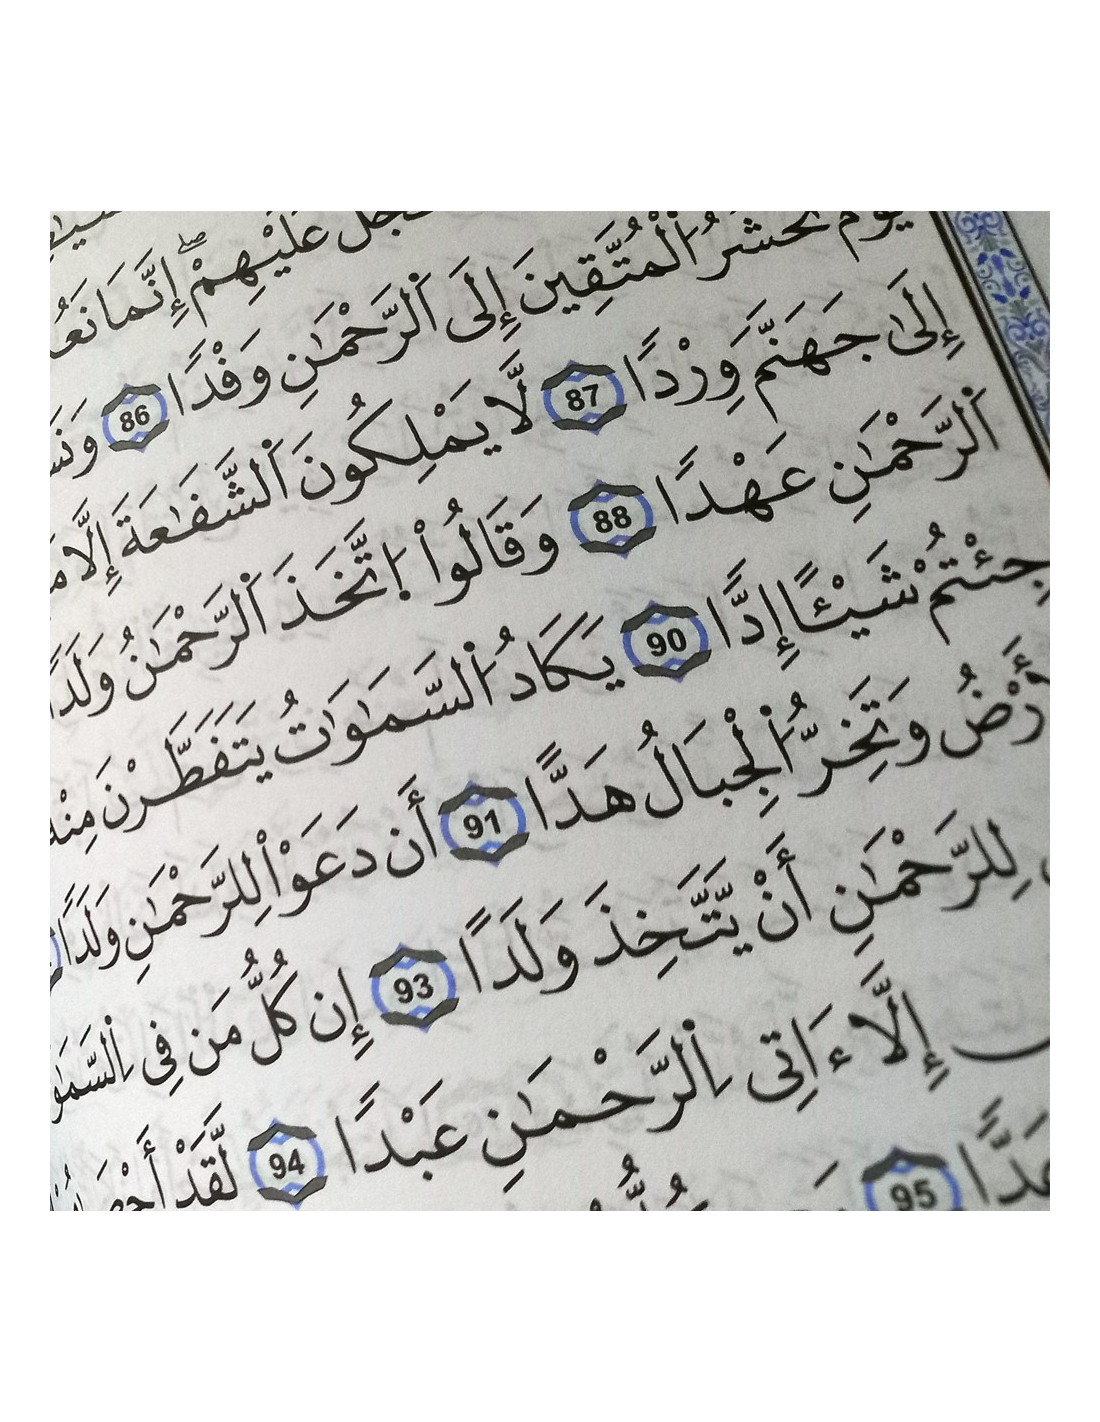 عَلَيْهِمْۖ إِنَّمَا
يَوْمَ نَحْشُرُ اُ۬لْمُتَّقِينَ إِلَى اَ۬لرَّحْمَٰنِ وَفْدًا 86
إِلَىٰ جَهَنَّمَ وِرْدًا 87 لَّا يَمْلِكُونَ اَ۬لشَّفَٰعَةَ إِلَّا
اَ۬لرَّحْمَٰنِ عَهْدًا 88 وَقَالُواْ اُ۪تَّخَذَ اَ۬لرَّحْمَٰنُ وَلَدًا
جِئْتُمْ شَيْـًٔا إِدًّا 90 يَكَادُ اُ۬لسَّمَٰوَٰتُ يَتَفَطَّرْنَ مِنْهُ
رْضُ وَتَخِرُّ اُ۬لْجِبَالُ هَدًّا 91 أَن دَعَوْاْ لِلرَّحْمَٰنِ وَلَدًا
لِلرَّحْمَٰنِ أَنْ يَّتَّخِذَ وَلَدًا 93 إِن كُلُّ مَن فِي اِ۬لسَّمَٰوَ
إِلَّا ءَاتِي اِ۬لرَّحْمَٰنِ عَبْدًا 94 لَّقَدْ
عَدًّا 95